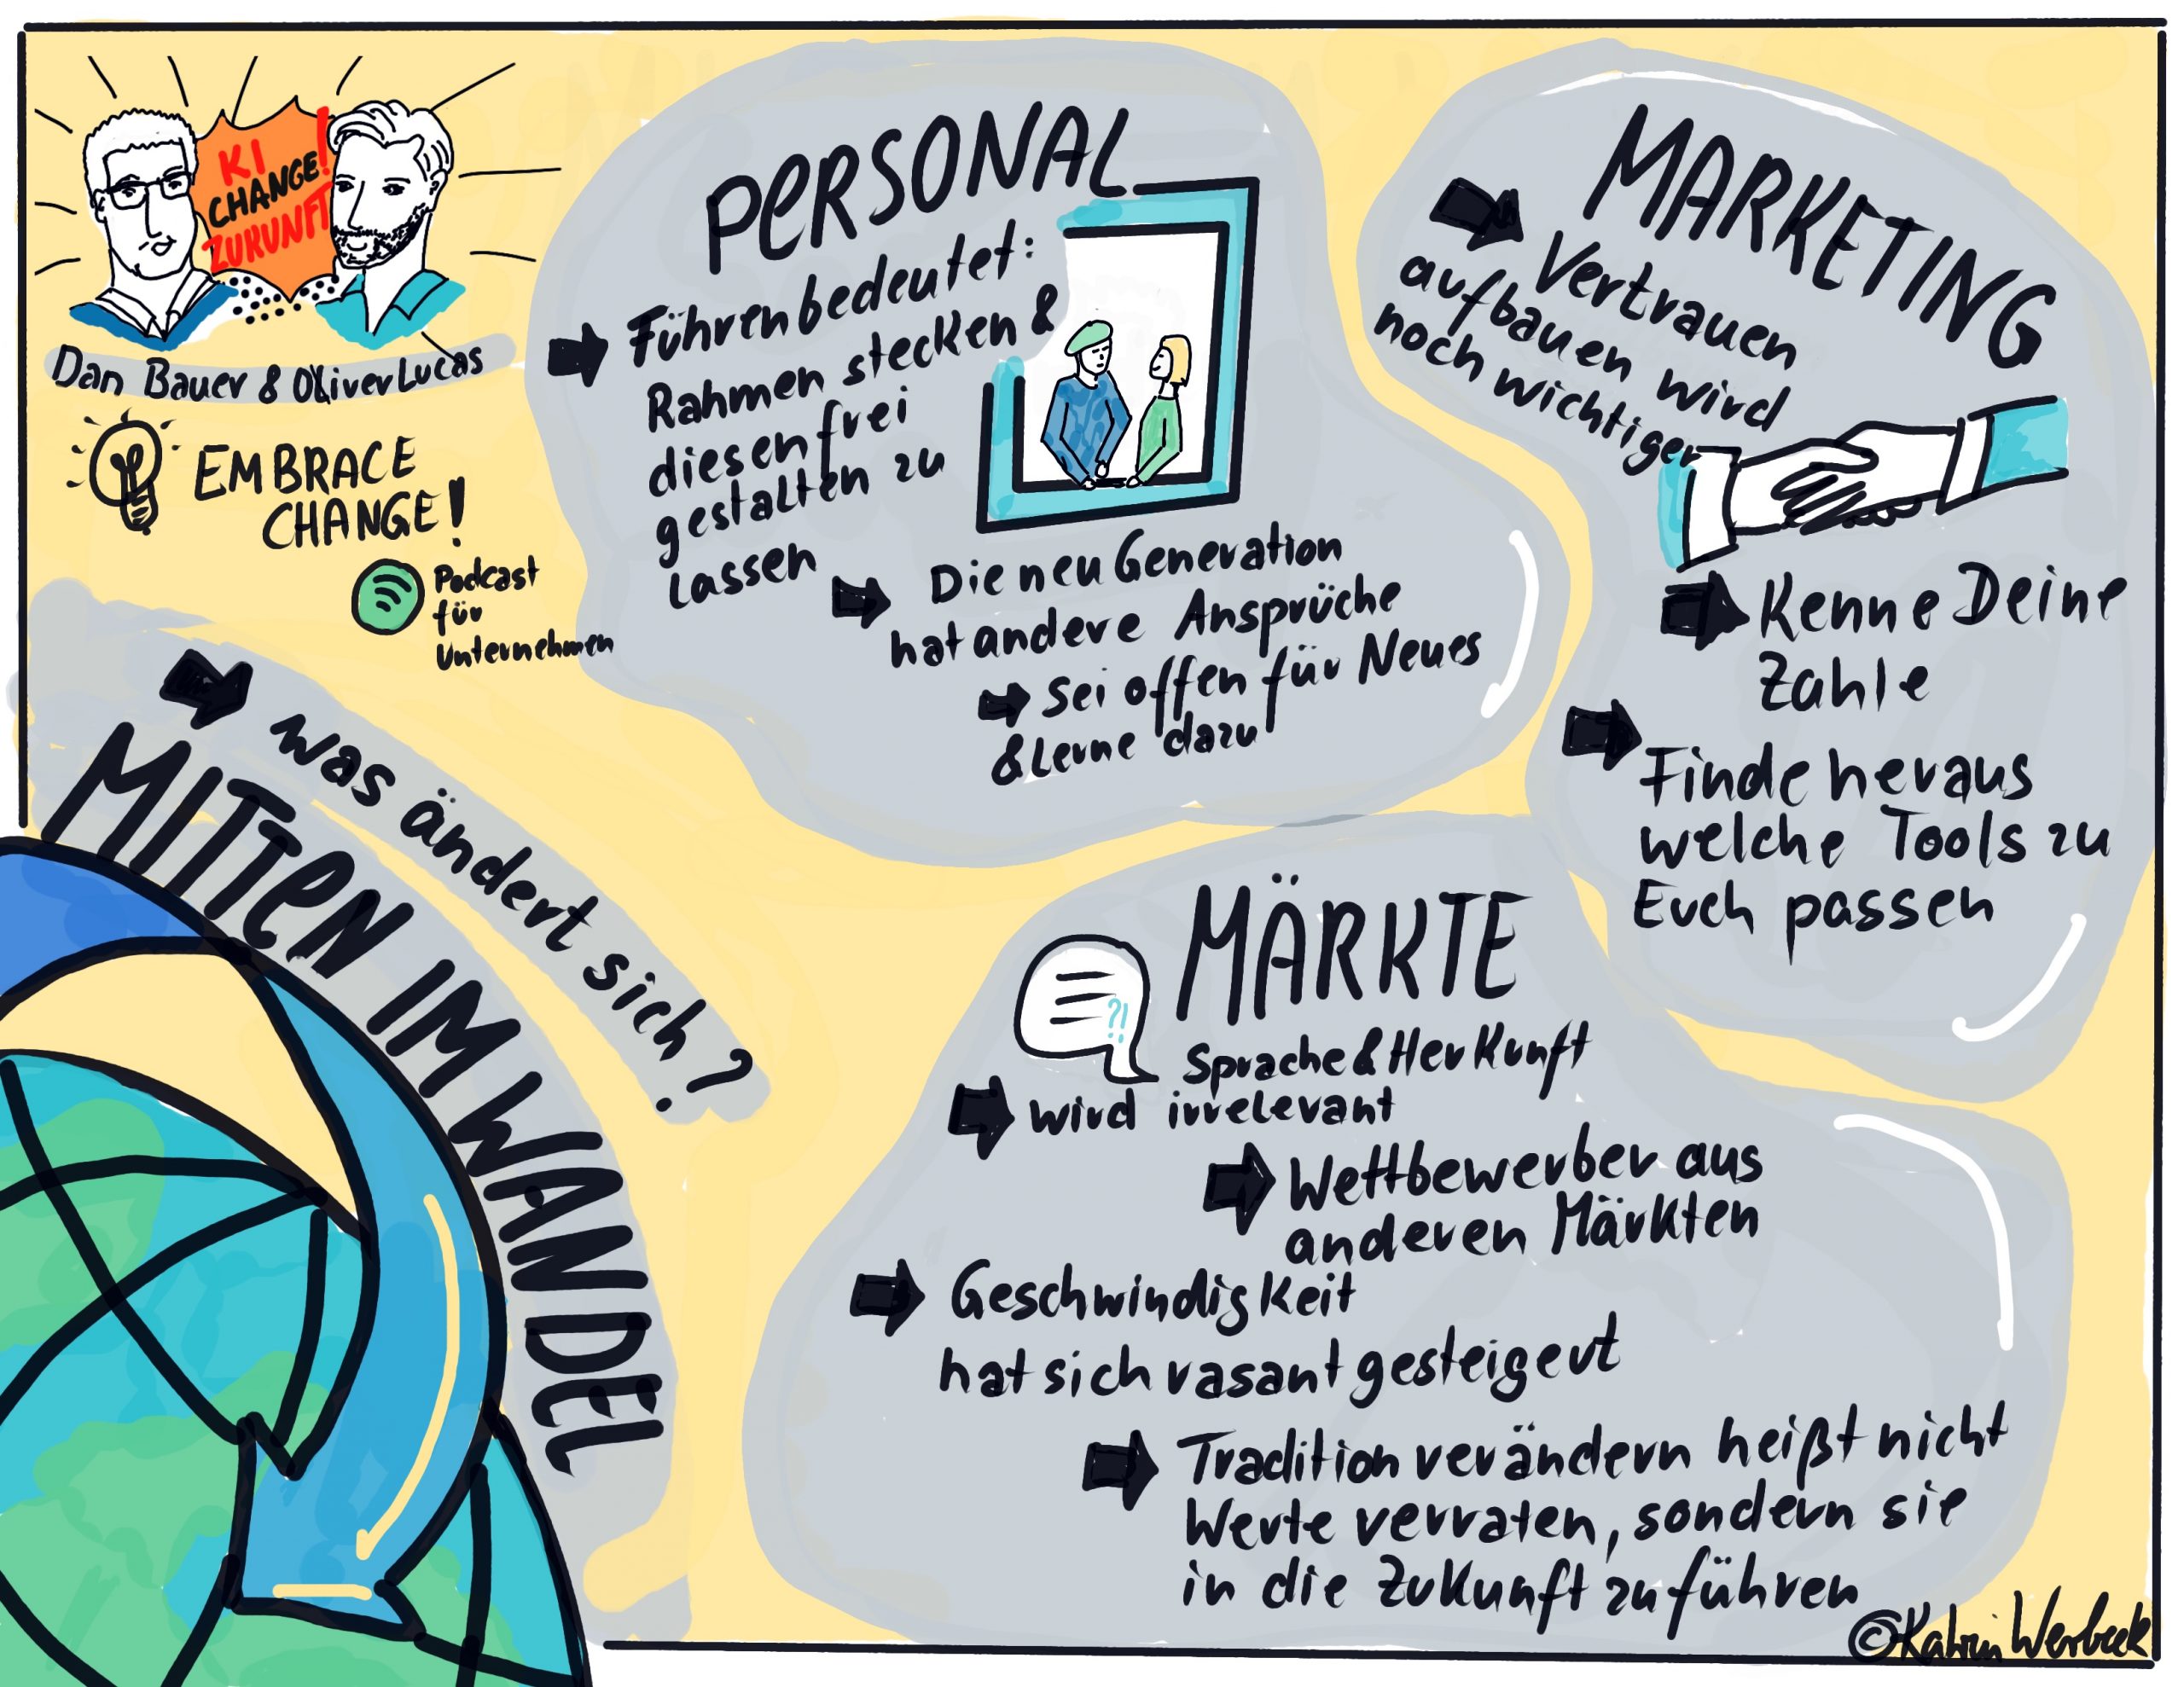 KI
CHANGE!
ZUKUNFT
Dan Bauer & Oliver Lucas
EMBRACE
CHANGE!
Podcast
für
Unternehmen
was ändert sich?
MITTEN IM WANDEL
PERSONAL
Führen bedeutet:
Rahmen stecken &
diesen frei
gestalten zu
lassen
Die neu Generation
hat andere Ansprüche
Sei offen für Neues
& Lerne dazu
MARKETING
Vertrauen
aufbauen wird
noch wichtiger
Kenne Deine
Zahle
Finde heraus
welche Tools zu
Euch passen
MÄRKTE
?!
Sprache & Herkunft
wird irrelevant
Wettbewerber aus
anderen Märkten
Geschwindigkeit
hat sich rasant gesteigert
Tradition verändern heißt nicht
Werte verraten, sondern sie
in die Zukunft zu führen
© Katrin Werbeck